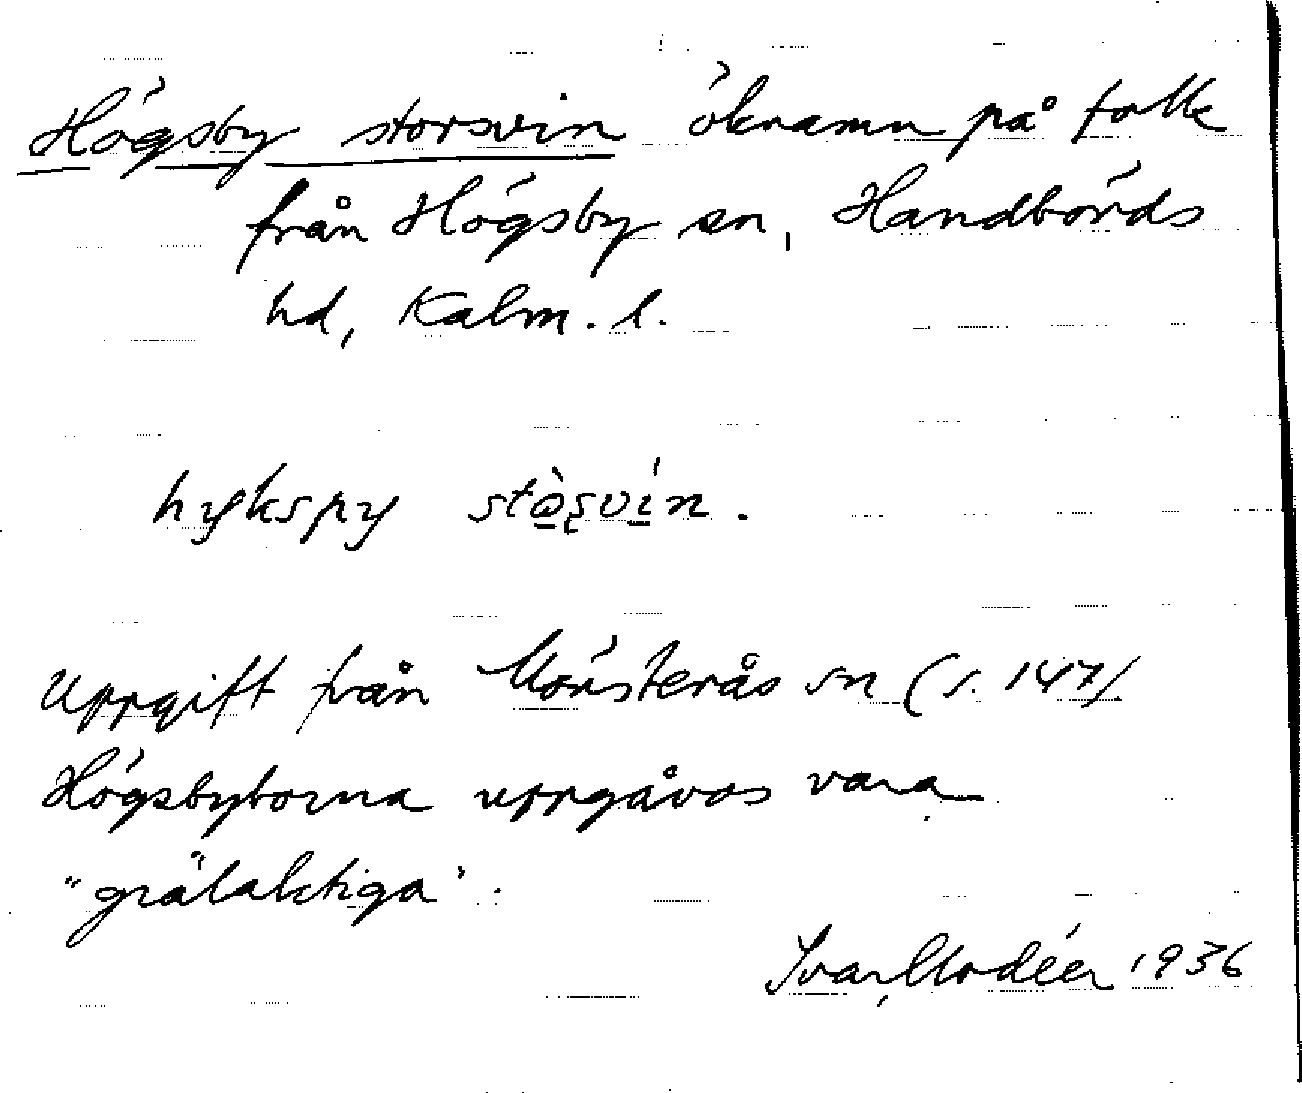 Högsby storsvin öknamn på folk
från Högsby sn, Handbörds
hd, Kalm. l.
hykspy stò̱ʂvi̱n.
Uppgift från Mönsterås sn (s. 147)
Högsbyborna uppgåvos vara
"grälaktiga".
Ivar Modéer 1936